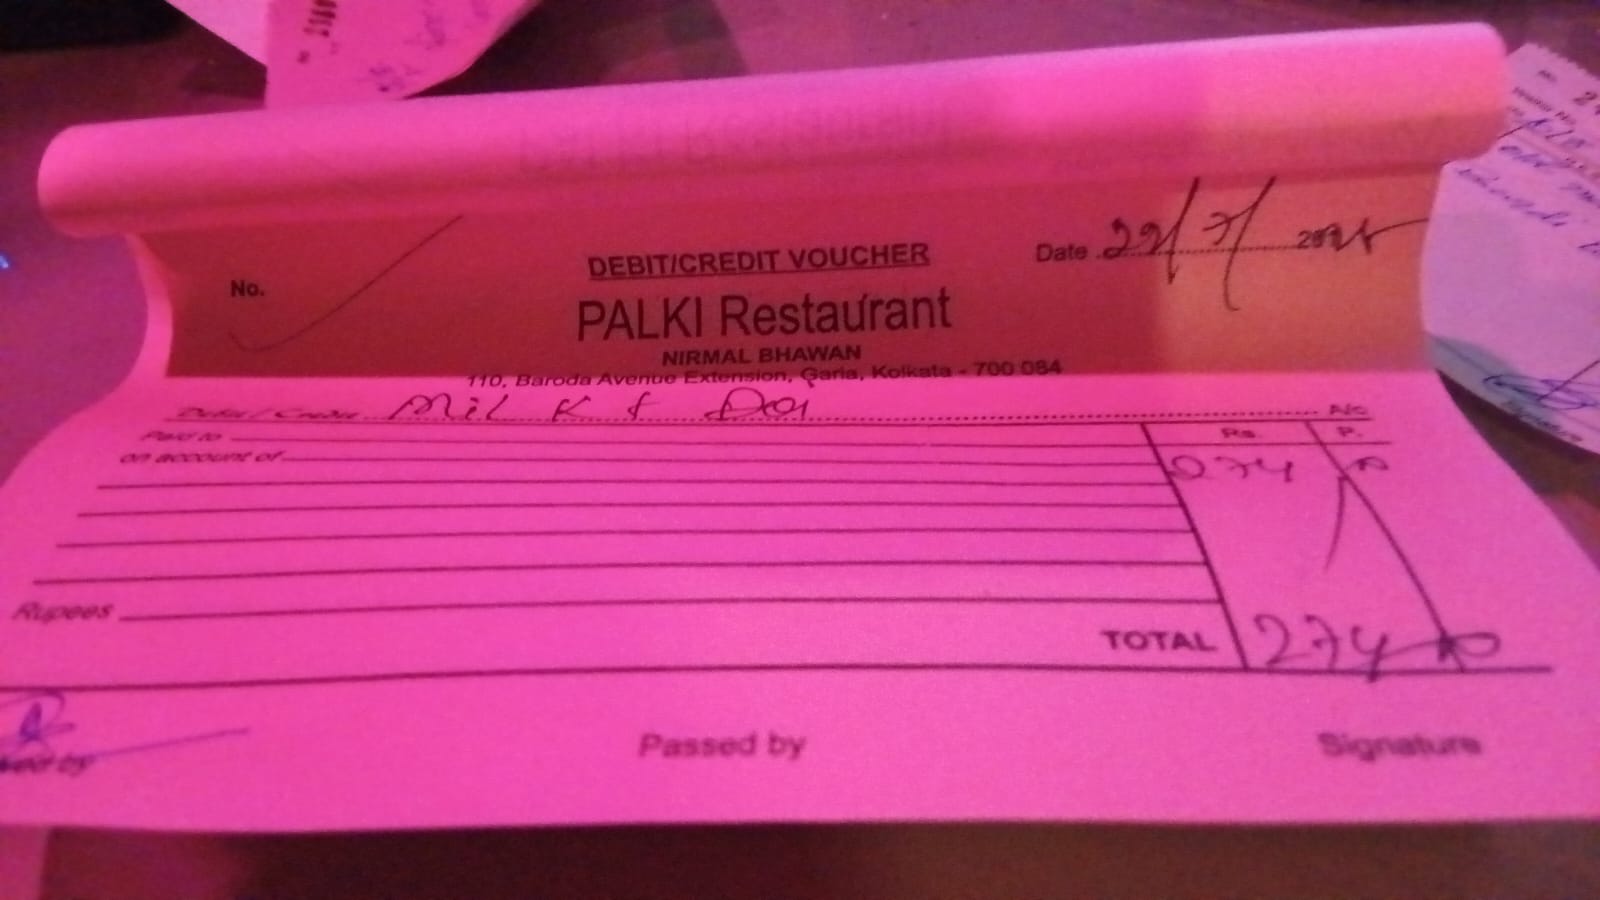 No.
DEBIT/CREDIT VOUCHER
Date 22/7/
PALKI Restaurant
NIRMAL BHAWAN
110, Baroda Avenue Extension, Garia, Kolkata - 700 084
Debit / Credit Milk & Doi A/c
Rs. P.
Paid to
on account of
274
Rupees
TOTAL 274
Passed by
Signature